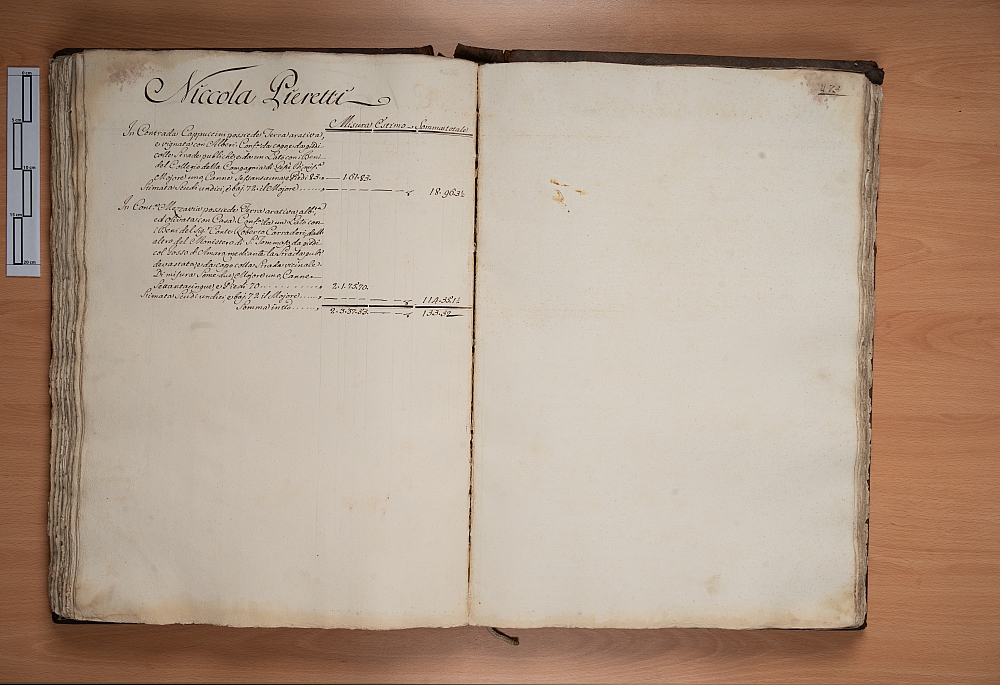 Niccola Pieretti
Misura Estimo Somma totale
In Contrada Cappuccini possiede Terra arativa,
e vignata con Alberi. Conf. da capo e da piedi
colle Strade publiche, e da un Lato con i Beni
del Collegio della Compagnia di Gesù
Majore uno, Canne Sessantauna, e Piedi 83. 1.61.83.
Stimata Scudi undici, e baj. 72 il Majore 18.96.3½
In Cont.a Mezzavia possiede Terra arativa, alb.ta
ed olivata con Casa. Conf. da un Lato con
i Beni del Sig. Conte Roberto Carradori, dall'
altro del Monistero di S. Tommaso, da piedi
col Fosso d'Amaro mediante la Strada
devastata, e da capo colla Strada vicinale.
Di misura Some due, Majore uno, Canne
Settantacinque, e Piedi 70 2.1.75.70.
Stimata Scudi undici, e baj. 72 il Majore 114.35.1½
Somma in tto 2.3.37.53. 133.32
474